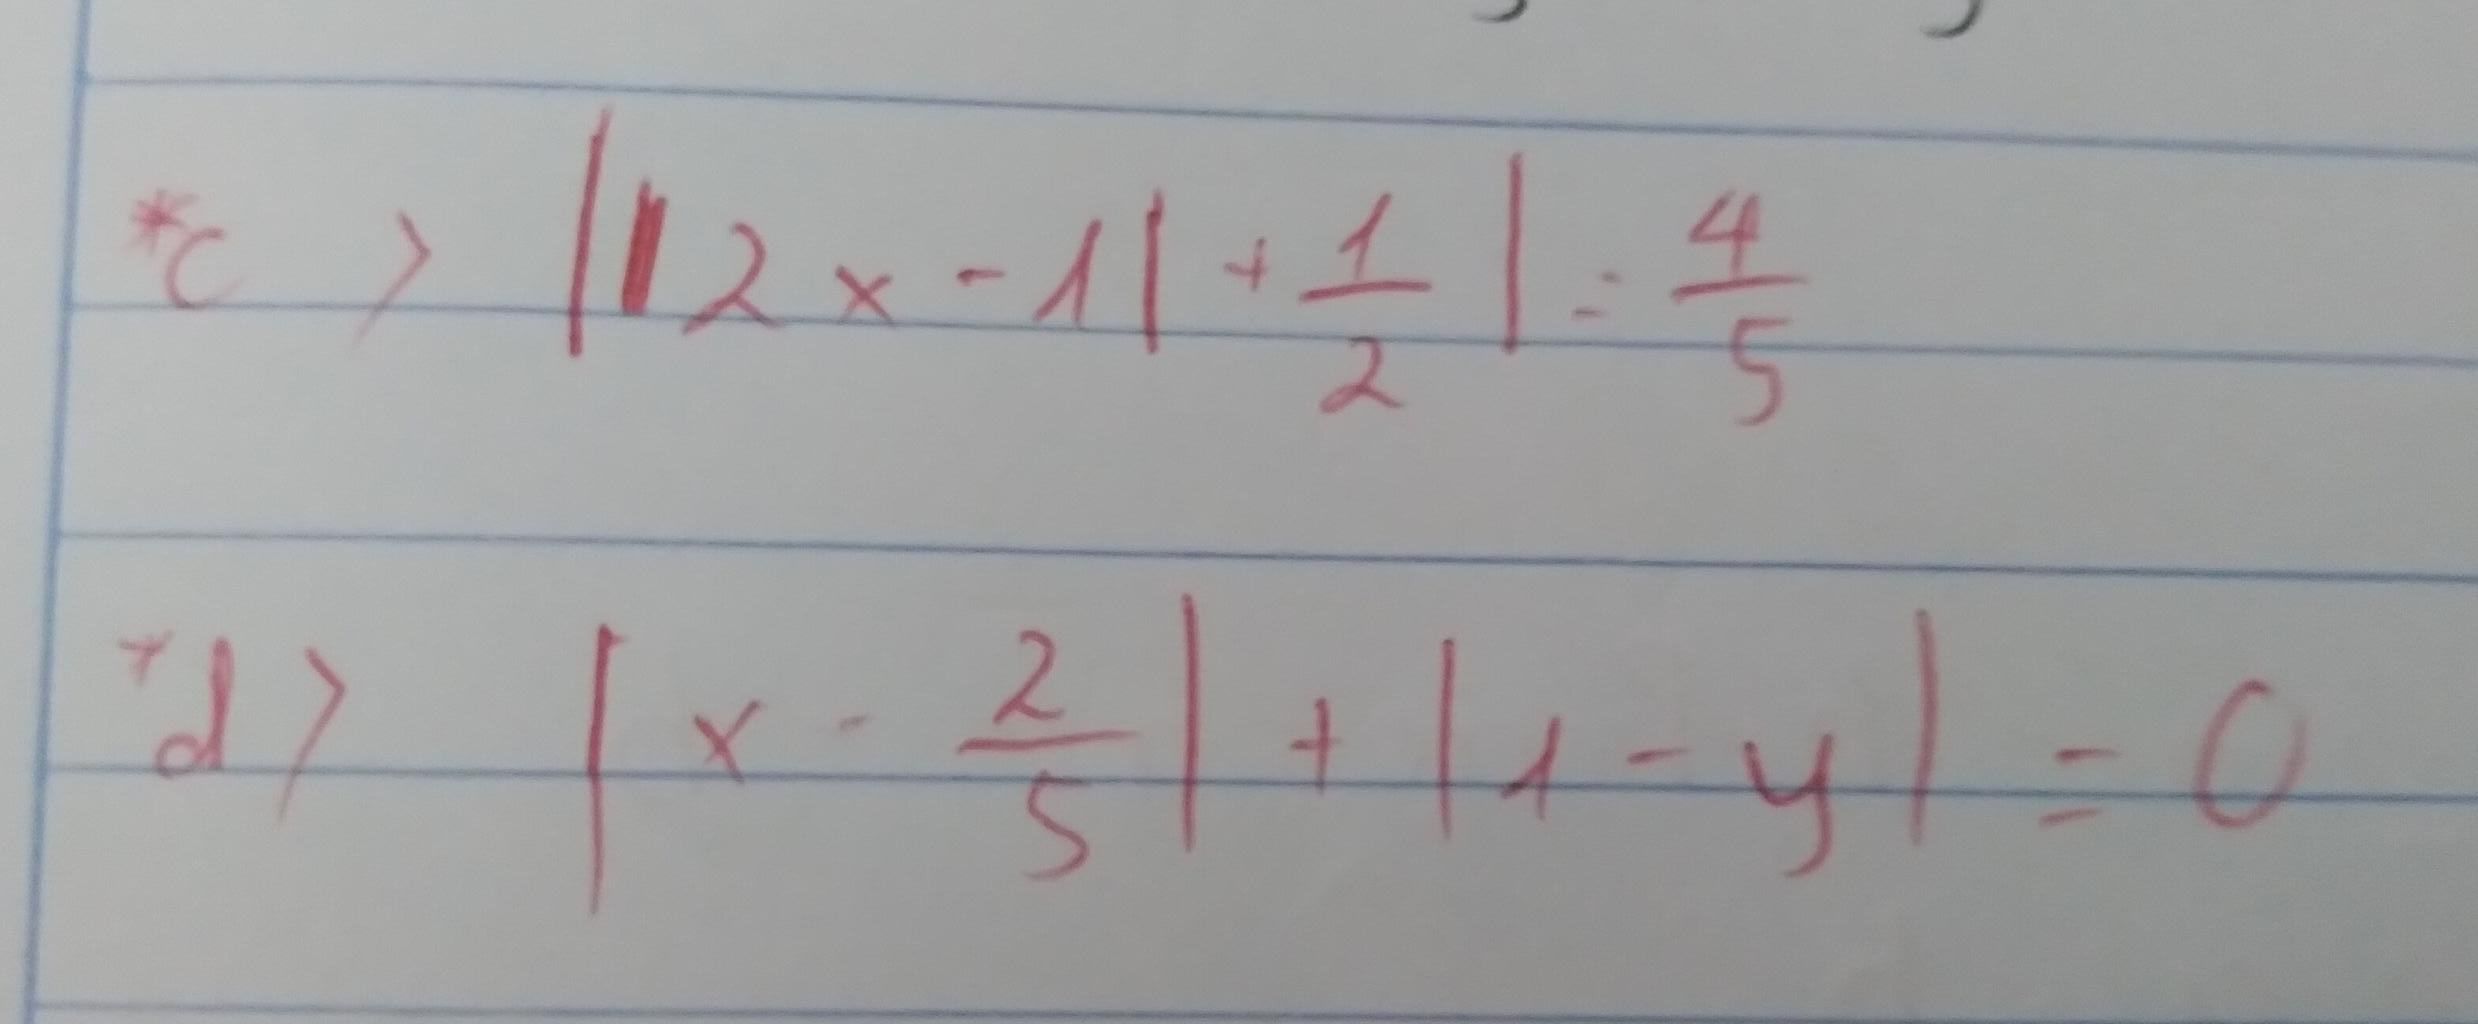 *c > ||2x - 1| + 1/2 | = 4/5
*d > |x - 2/5| + |1 - y| = 0